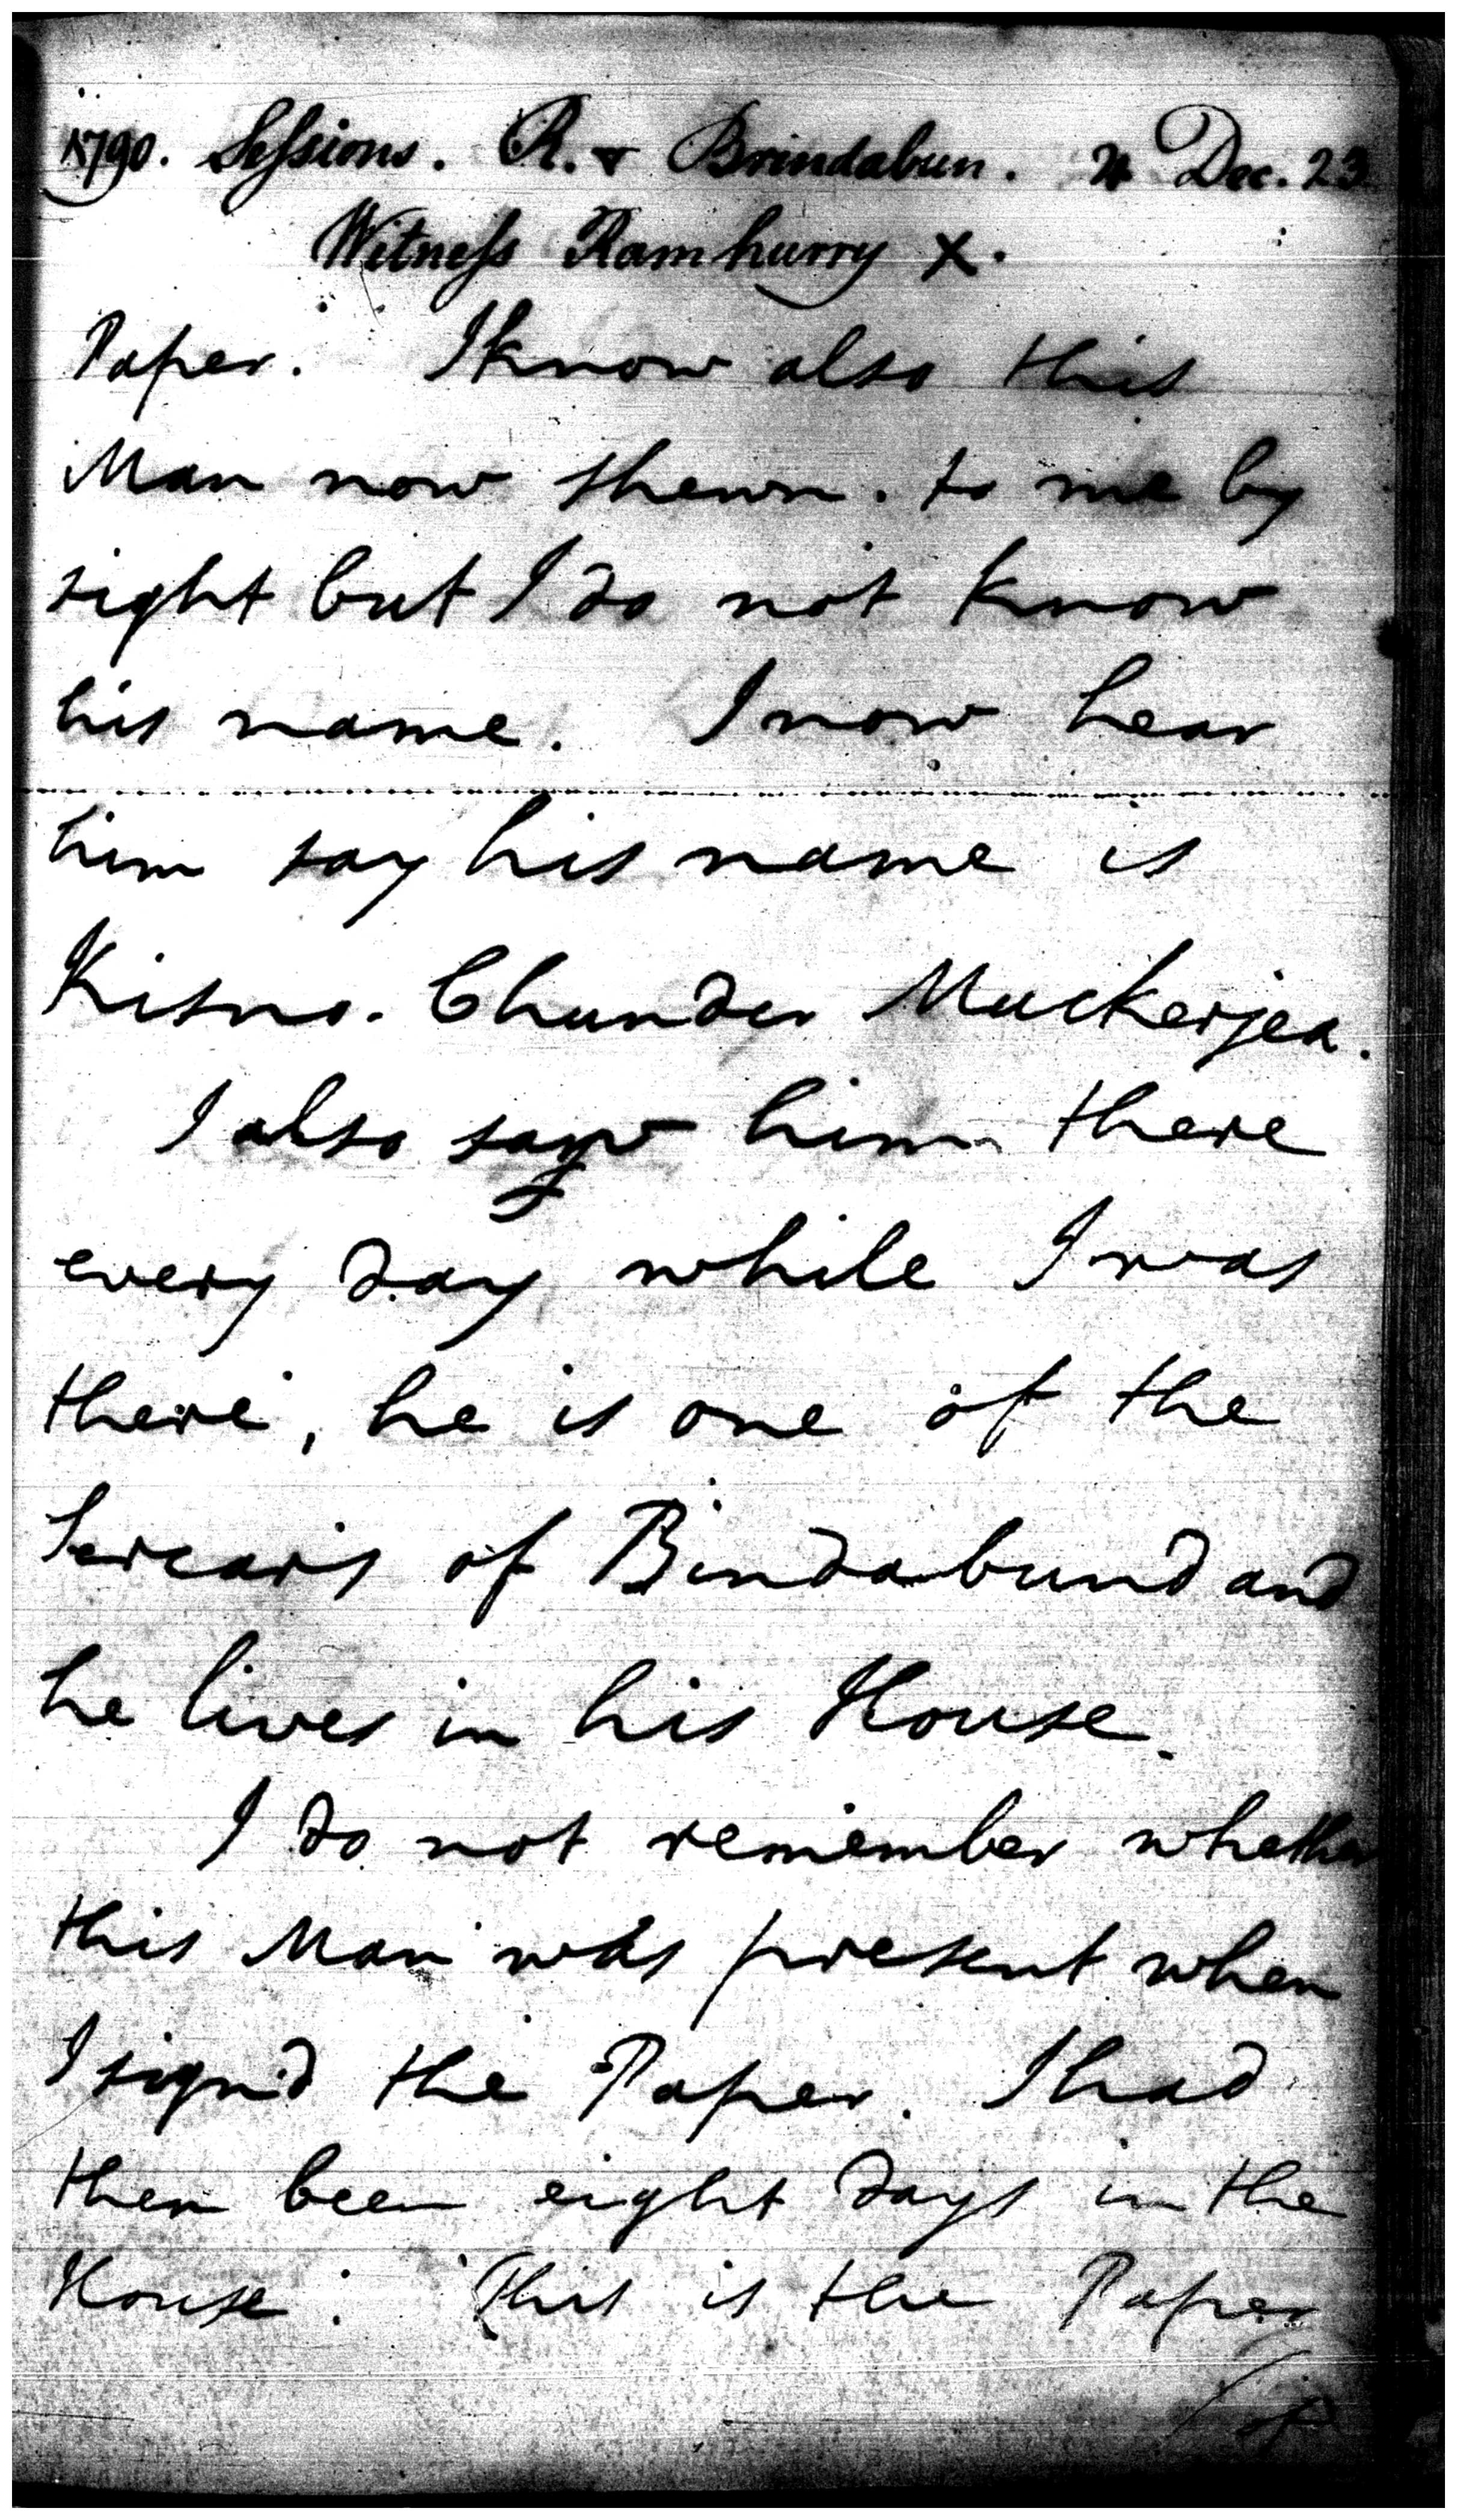 1790. Sessions. R. v Brindabun. ♃ Dec. 23
Witness Ramhurry X.
Paper. I know also this
Man now shewn to me by
sight but I do not know
his name. I now hear
him say his name is
Kisno. Chunder Muckerjea.
I also saw him there
every day while I was
there, he is one of the
Sercars of Bindabund and
he lives in his House.
I do not remember whether
this Man was present when
I sign'd the Paper. I had
then been eight days in the
House. This is the Paper
of